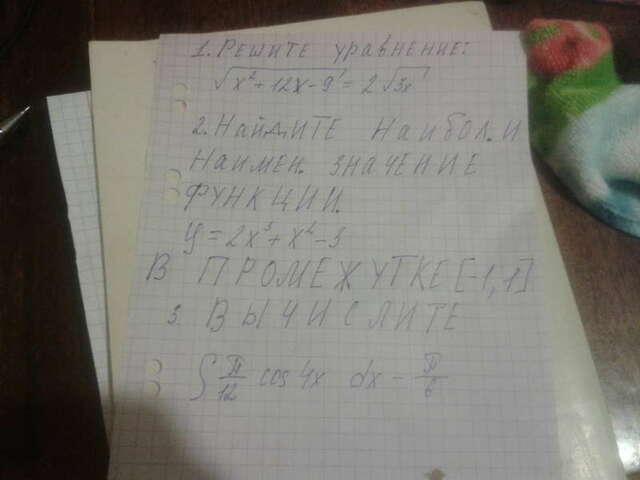 1. Решите уравнение:
√x²+12x-9 = 2√3x
2. Найдите наибол. и
наимен. значение
функции.
y = 2x³+x²-3
в промежутке [-1,1]
3. Вычислите
∫ π/12 cos 4x dx - π/6